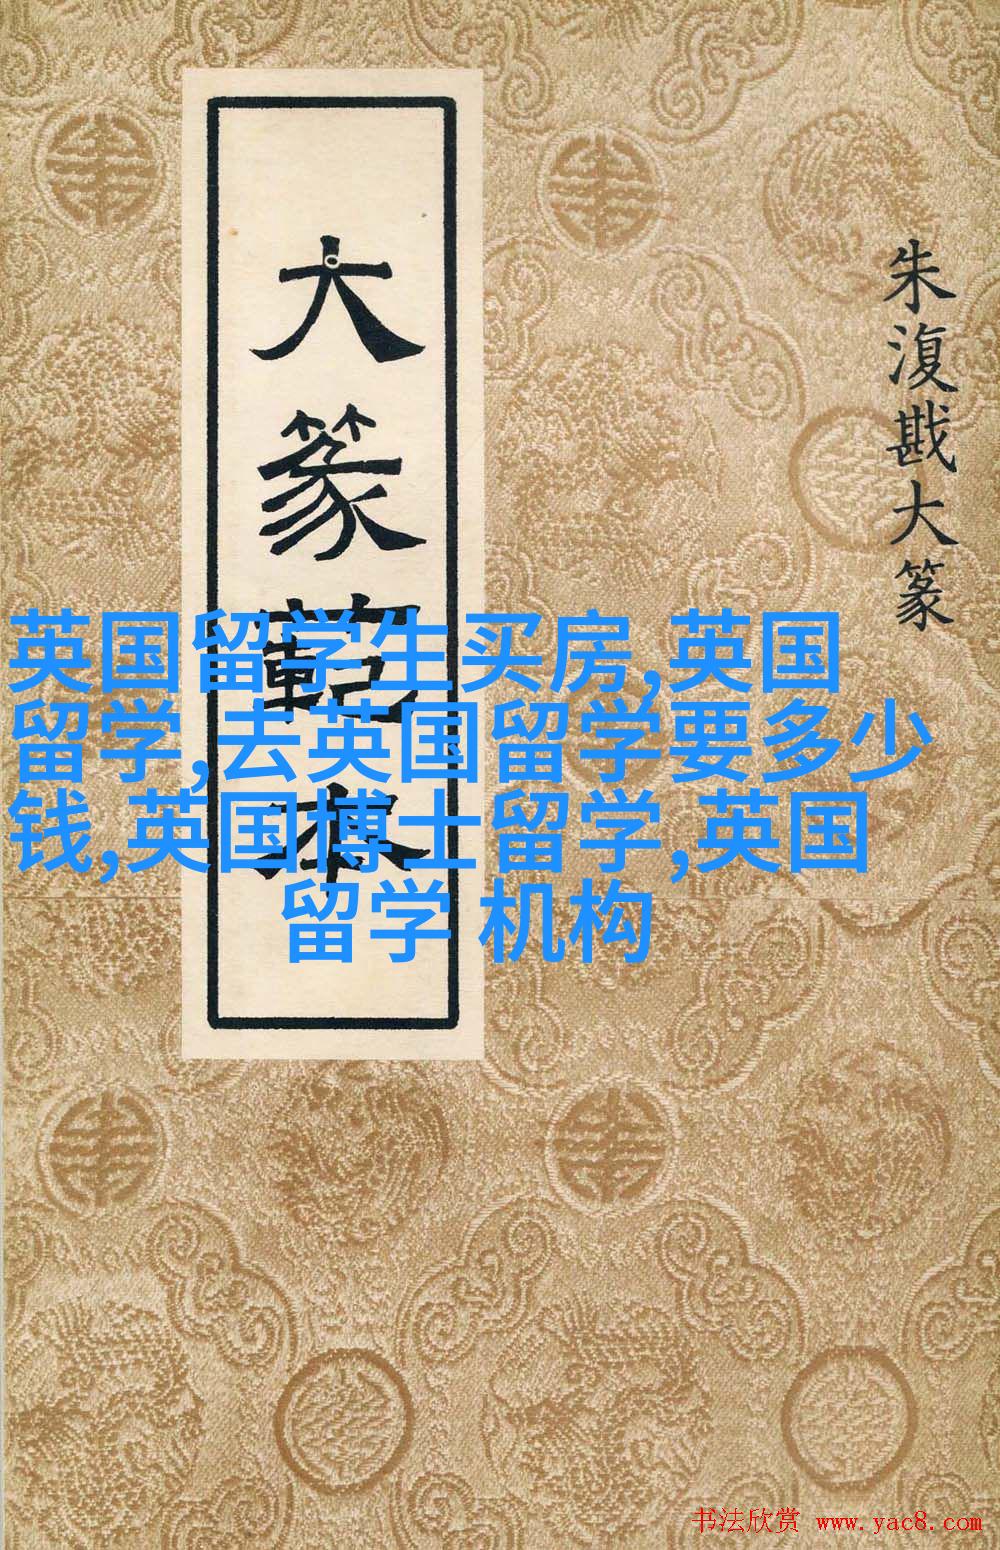 大篆範本
朱復戡大篆
英国留学生买房,英国
留学,去英国留学要多少
钱,英国博士留学,英国
留学 机构
书法欣赏 www.yac8.com